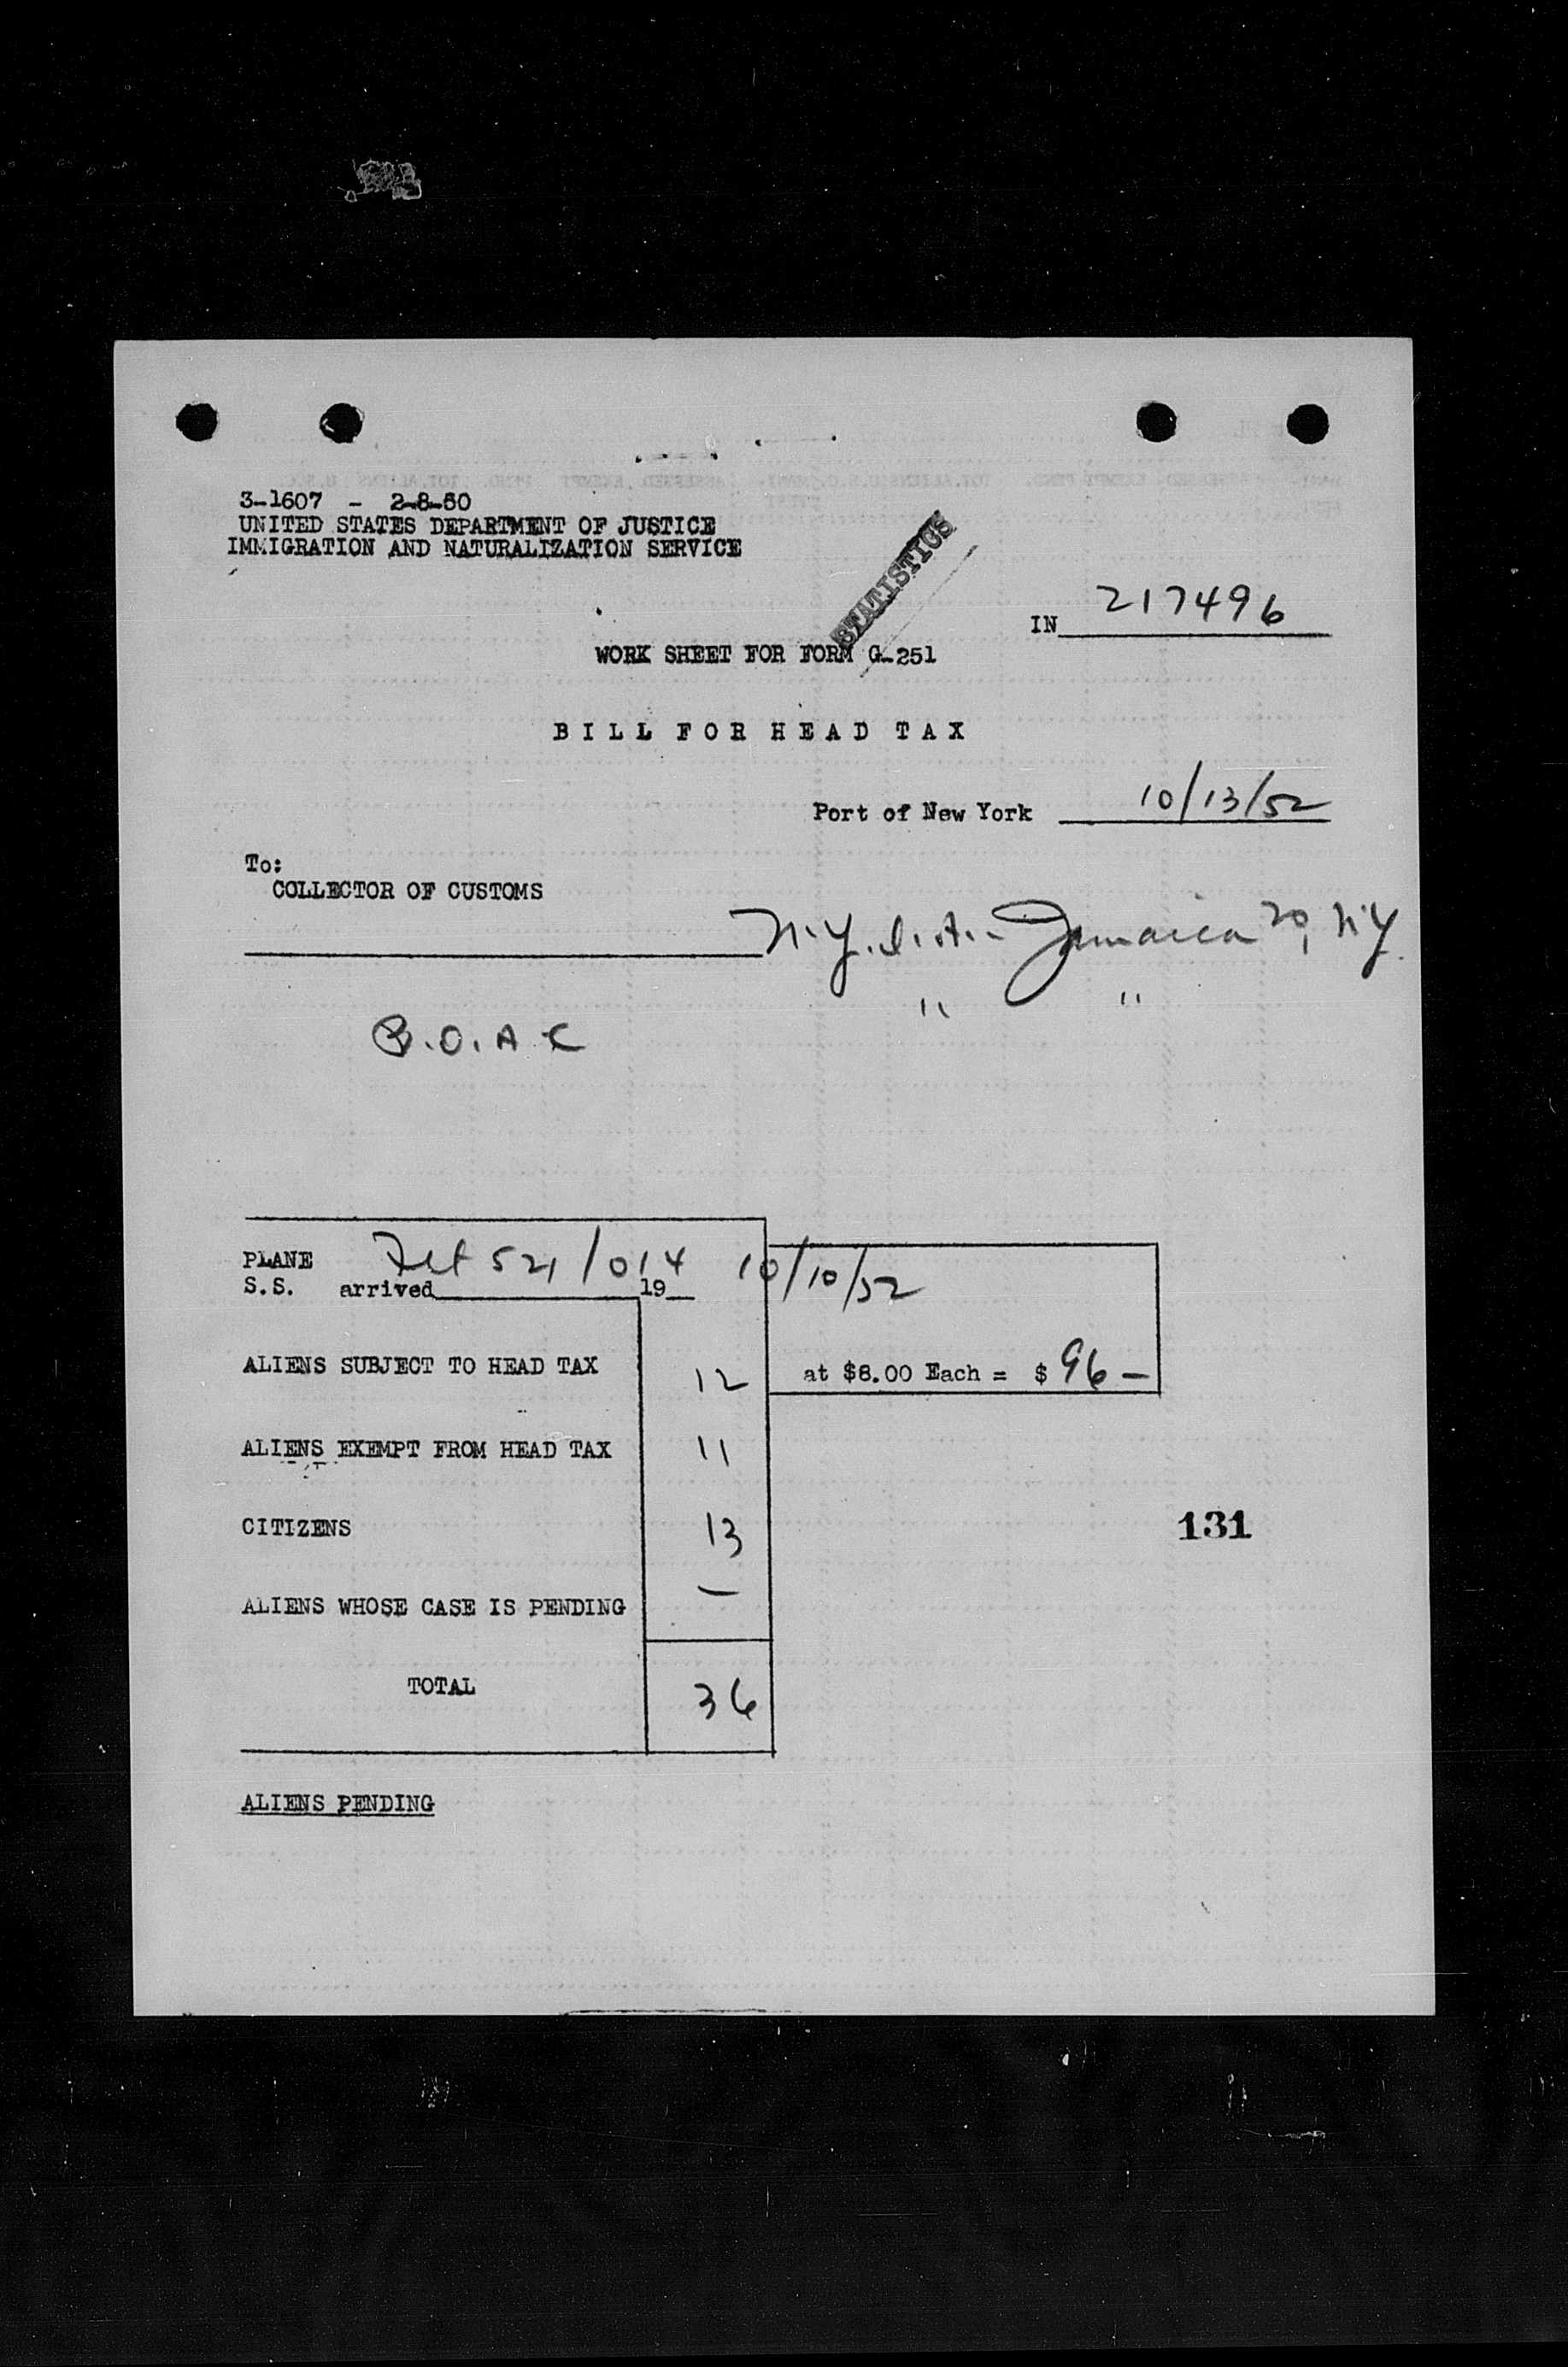 3-1607 - 2-8-50
UNITED STATES DEPARTMENT OF JUSTICE
IMMIGRATION AND NATURALIZATION SERVICE
STATISTICS
IN 217496
WORK SHEET FOR FORM G-251
BILL FOR HEAD TAX
Port of New York 10/13/52
To:
COLLECTOR OF CUSTOMS
N.Y.I.A. - Jamaica 30, NY.
" "
B.O.A.C
PLANE Flt 521/014 10/10/52
S.S. arrived 19
ALIENS SUBJECT TO HEAD TAX 12 at $8.00 Each = $ 96 -
ALIENS EXEMPT FROM HEAD TAX 11
CITIZENS 13
131
ALIENS WHOSE CASE IS PENDING -
TOTAL 36
ALIENS PENDING